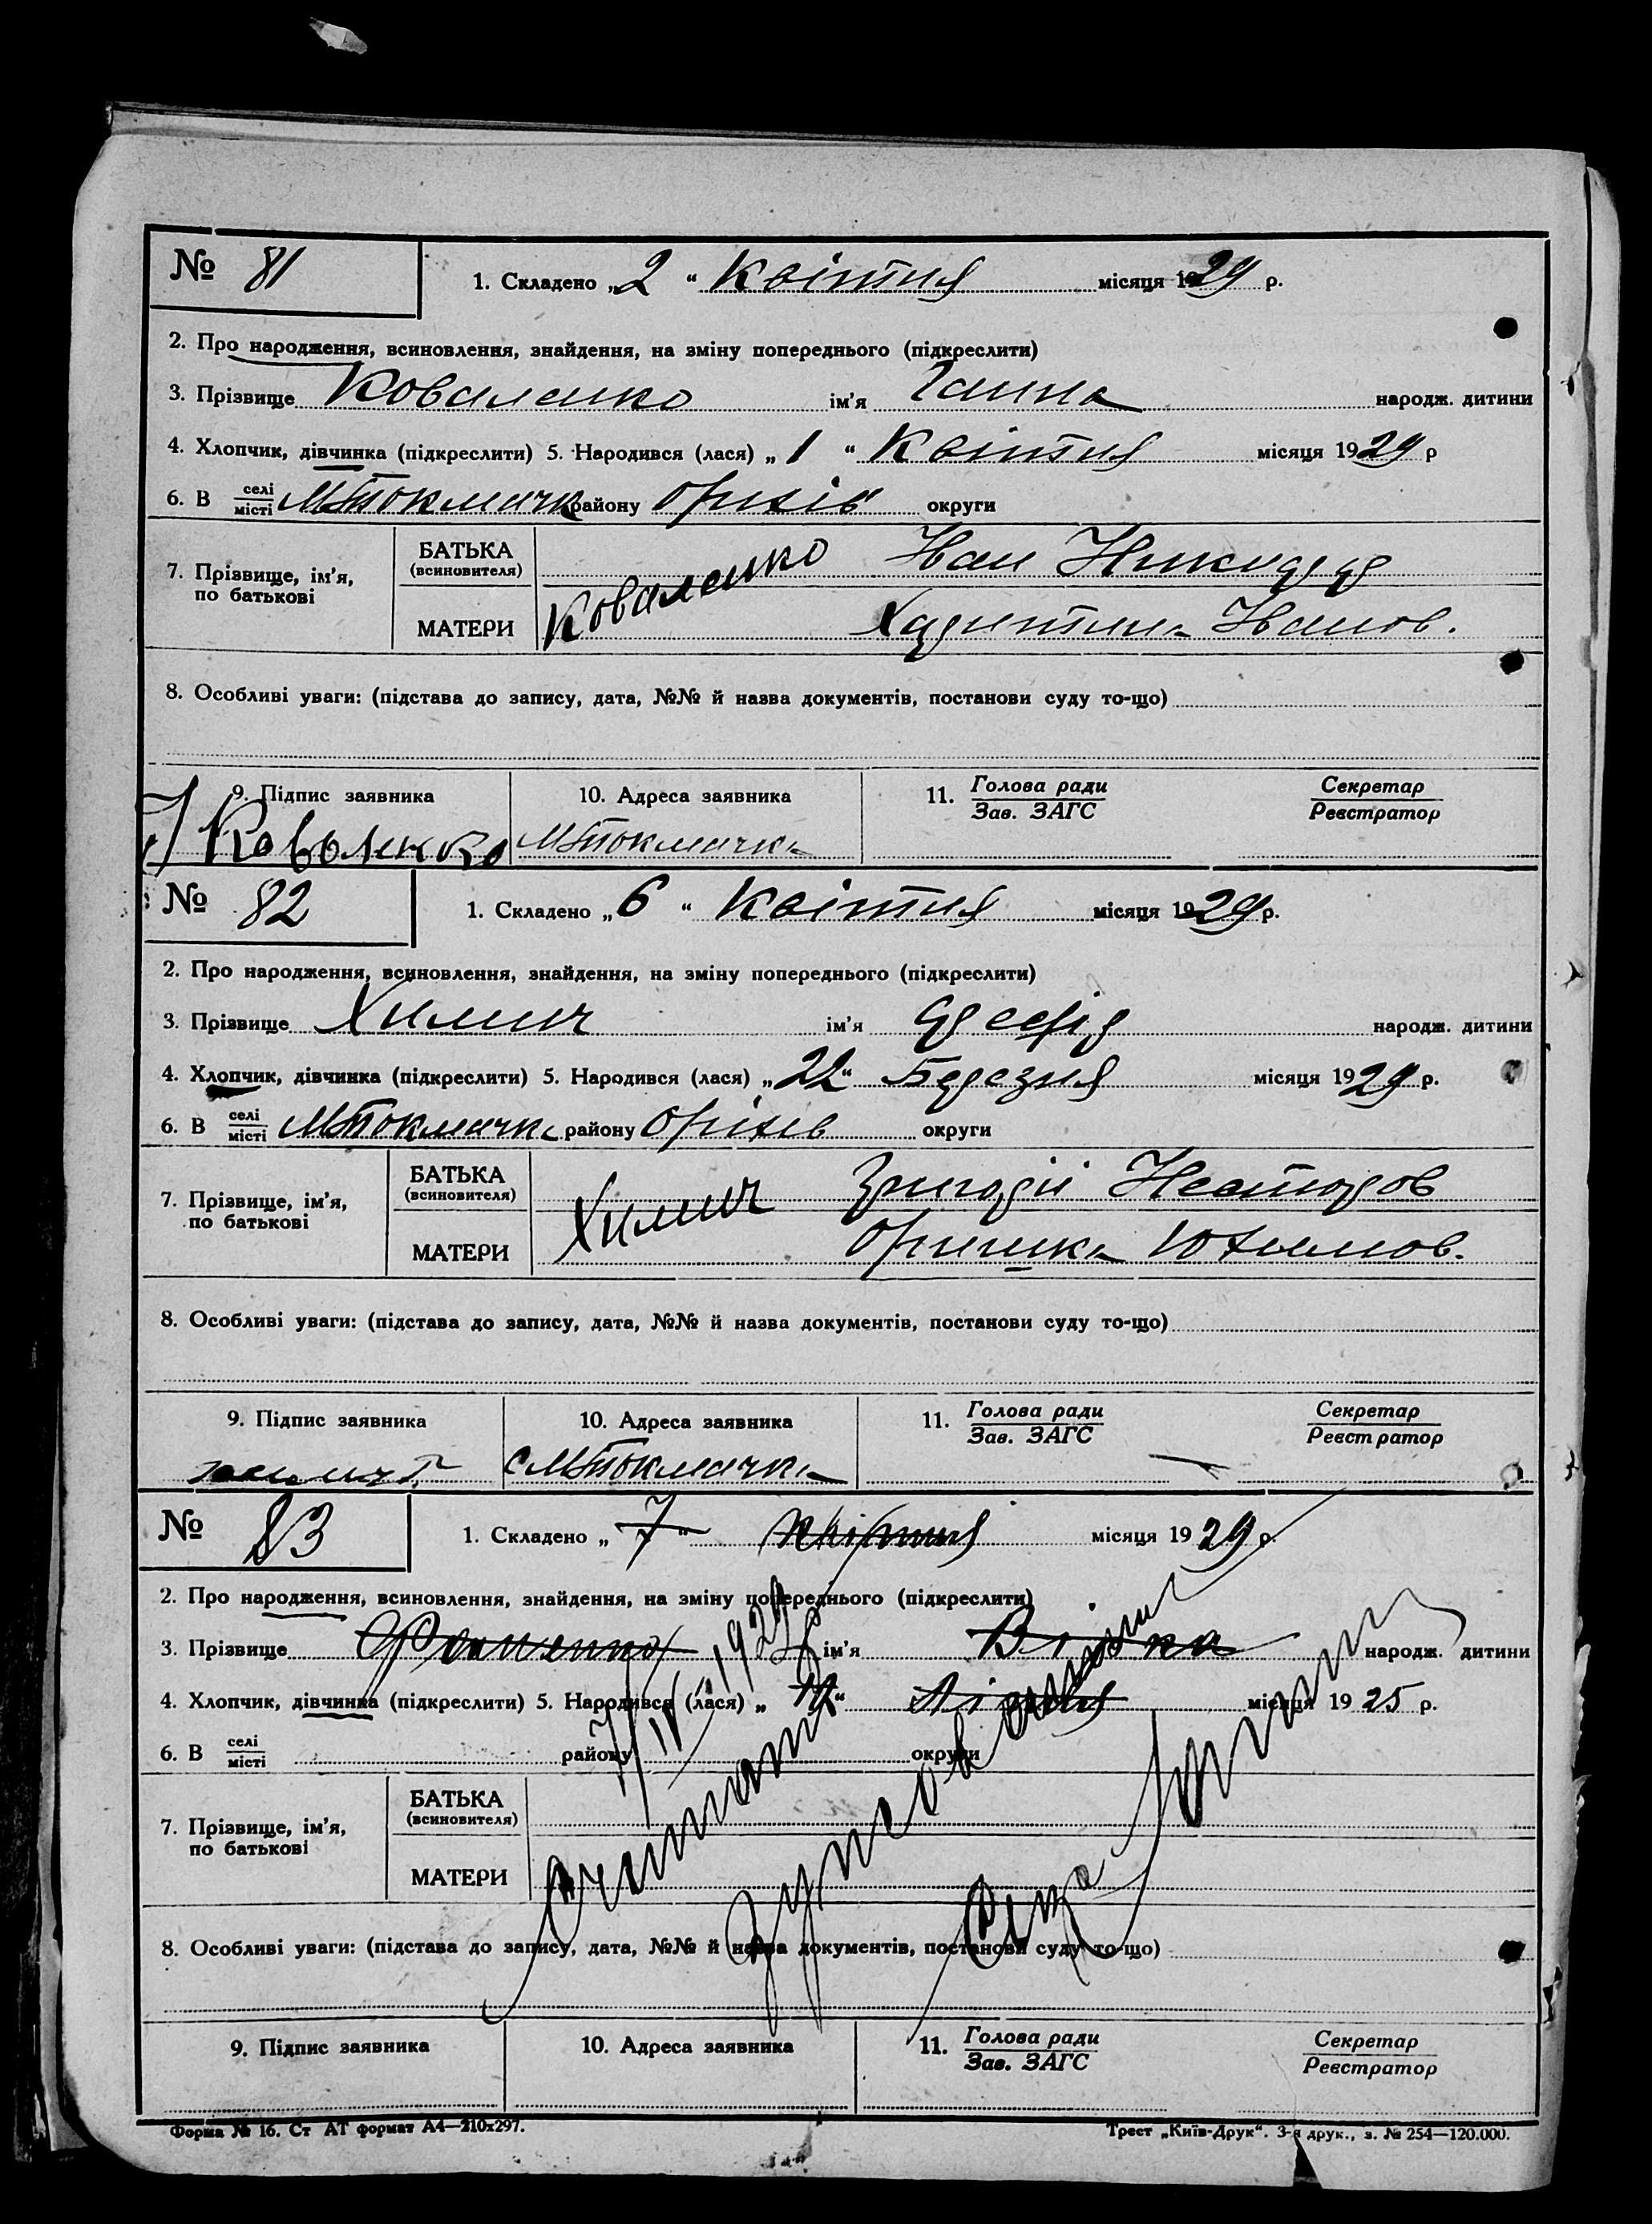 № 81
1. Складено „2“ Квітня місяця 1929 р.
2. Про народження, всиновлення, знайдення, на зміну попереднього (підкреслити)
3. Прізвище Коваленко ім'я Ганна народж. дитини
4. Хлопчик, дівчинка (підкреслити) 5. Народився (лася) „1“ Квітня місяця 1929 р
6. В селі місті МТокмачка району Оріхів округи
7. Прізвище, ім'я, по батькові
БАТЬКА (всиновителя) Коваленко Иван
МАТЕРИ Иванов.
8. Особливі уваги: (підстава до запису, дата, №№ й назва документів, постанови суду то-що)
9. Підпис заявника 10. Адреса заявника 11. Голова ради Зав. ЗАГС Секретар Реєстратор
МТокмачка
№ 82
1. Складено „6“ Квітня місяця 1929 р.
2. Про народження, всиновлення, знайдення, на зміну попереднього (підкреслити)
3. Прізвище Химич ім'я народж. дитини
4. Хлопчик, дівчинка (підкреслити) 5. Народився (лася) „22“ Березня місяця 1929 р.
6. В селі місті МТокмачка району Оріхів округи
7. Прізвище, ім'я, по батькові
БАТЬКА (всиновителя) Химич Григорій
МАТЕРИ Юхимов.
8. Особливі уваги: (підстава до запису, дата, №№ й назва документів, постанови суду то-що)
9. Підпис заявника 10. Адреса заявника 11. Голова ради Зав. ЗАГС Секретар Реєстратор
с МТокмачка
№ 83
1. Складено „7“ Квітня місяця 1929 р.
2. Про народження, всиновлення, знайдення, на зміну попереднього (підкреслити)
3. Прізвище ім'я народж. дитини
4. Хлопчик, дівчинка (підкреслити) 5. Народився (лася) місяця 1925 р.
6. В селі місті району округи
7. Прізвище, ім'я, по батькові
БАТЬКА (всиновителя)
МАТЕРИ
8. Особливі уваги: (підстава до запису, дата, №№ й назва документів, постанови суду то-що)
9. Підпис заявника 10. Адреса заявника 11. Голова ради Зав. ЗАГС Секретар Реєстратор
7/IV 1929
Форма № 16. Ст АТ формат А4—210x297. Трест „Київ-Друк“. 3-я друк., з. № 254—120.000.